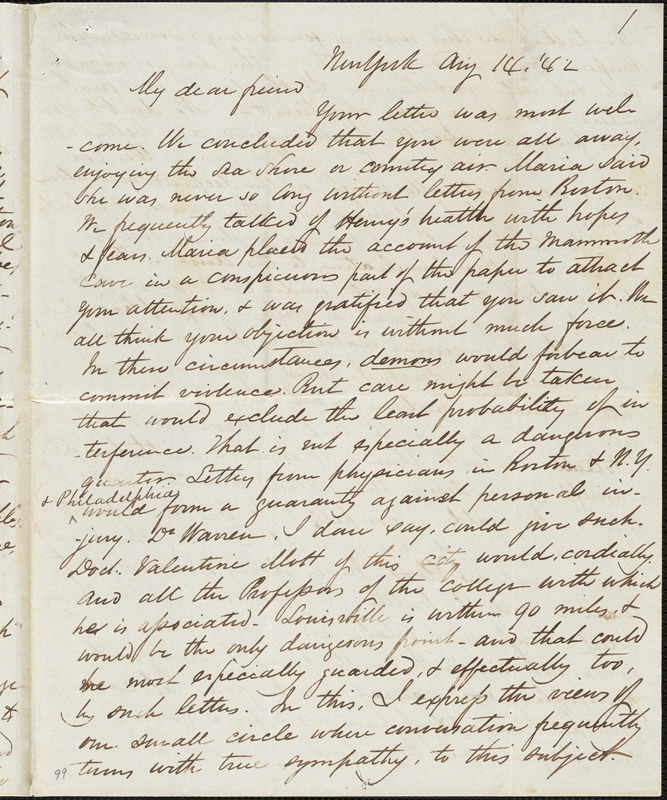 1
New York Aug 14. '42
My dear friend
Your letter was most wel-
-come. We concluded that you were all away,
enjoying the sea shore or country air. Maria said
she was never so long without letters from Boston.
We frequently talked of Henry's health with hopes
& fears. Maria placed the account of the Mammoth
Cave in a conspicuous part of the paper to attract
your attention, & was gratified that you saw it. We
all think your objection is without much force.
In these circumstances, demons would forbear to
commit violence. But care might be taken
that would exclude the least probability of in
-terference. That is not especially a dangerous
quarter. Letters from physicians in Boston & N.Y.
& Philadelphia
would form a guaranty against personal in-
-jury. Dr Warren, I dare say, could give such.
Doct. Valentine Mott of this city would, cordially
and all the Professors of the college with which
he is associated - Louisville is within 90 miles, &
would be the only dangerous point - and that could
be most especially guarded, & effectually too,
by such letters. In this, I express the views of
our small circle where conversation frequently
turns with true sympathy, to this subject.
99